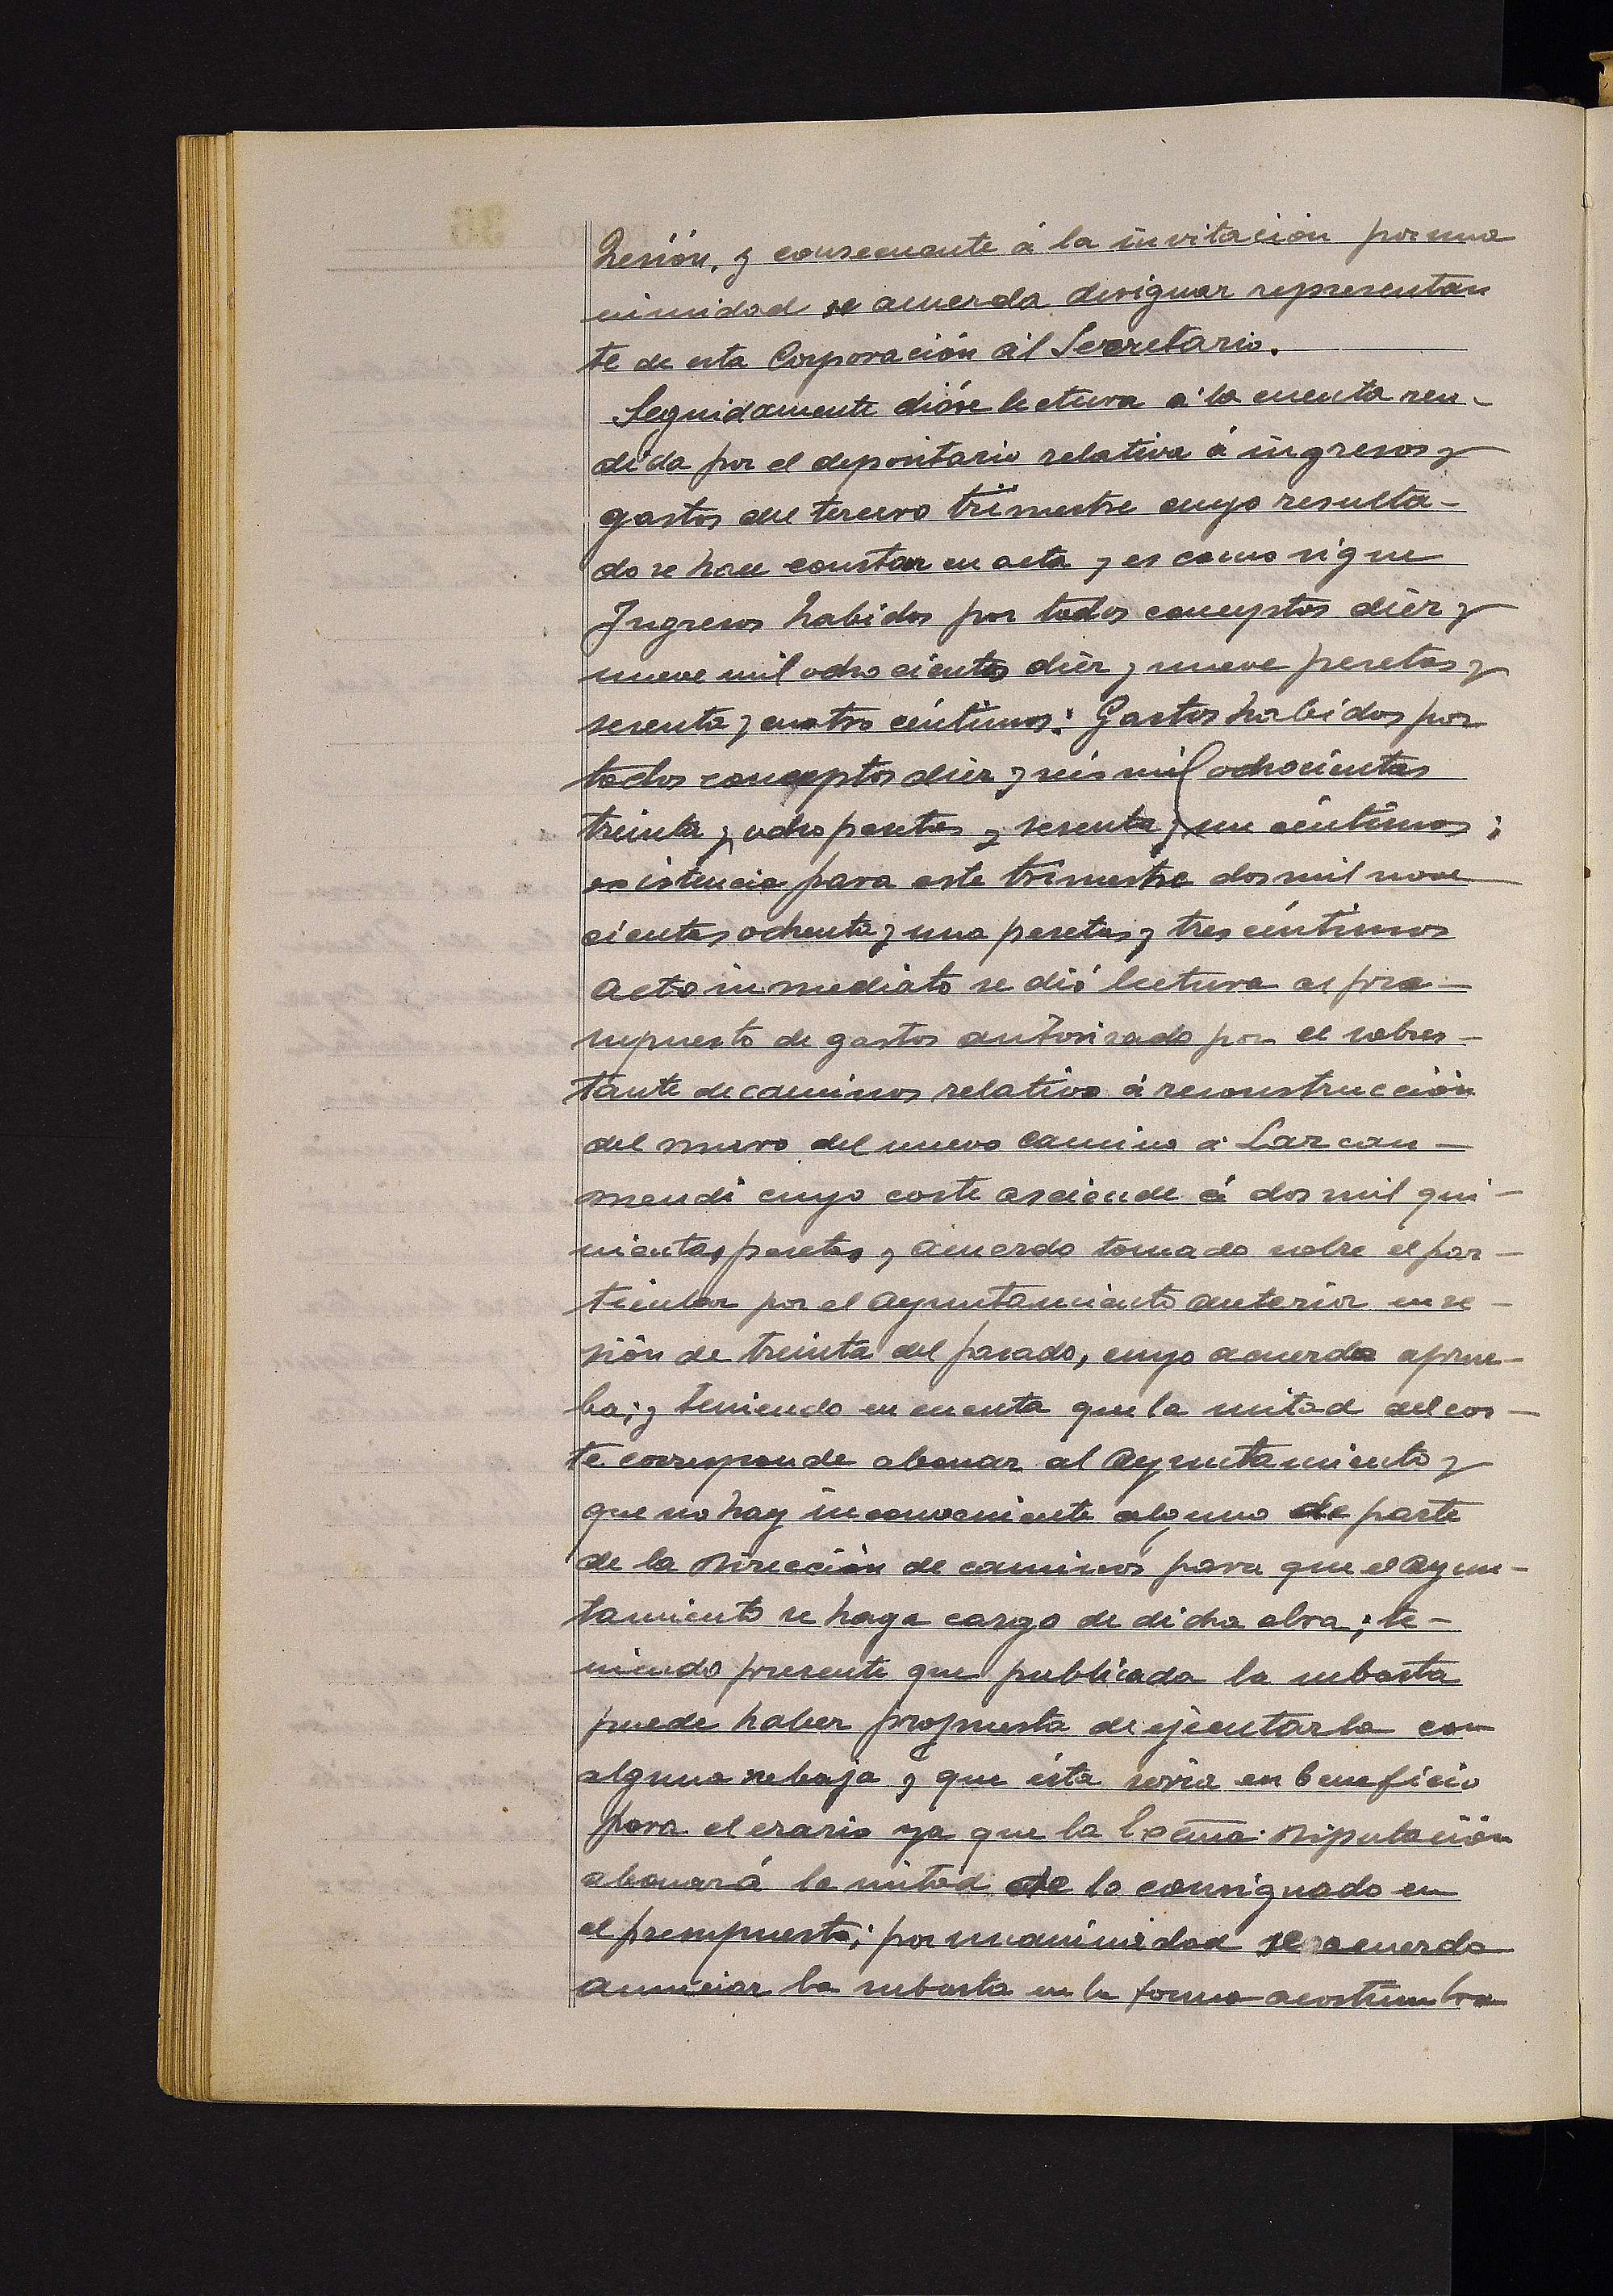 hesión, y consecuente á la invitación por una
nimidad se acuerda designar representan
te de esta Corporación al Secretario.
Seguidamente dióse lectura á la cuenta ren-
dida por el depositario relativa á ingresos y
gastos del tercero trimestre cuyo resulta-
do se hace constar en acta y es como sigue
Ingresos habidos por todos conceptos diez y
nueve mil ochocientas diez y nueve pesetas y
sesenta y cuatro céntimos: Gastos habidos por
todos conceptos diez y seis mil ochocientas
treinta y ocho pesetas y sesenta y un céntimos;
existencia para este trimestre dos mil nove
cientas ochenta y una pesetas y tres céntimos
Acto inmediato se dió lectura al pre-
supuesto de gastos autorizado por el sobres-
tante de caminos relativo á reconstrucción
del muro del nuevo camino á Lazcan-
mendi cuyo coste asciende á dos mil qui-
nientas pesetas y acuerdo tomado sobre el par-
ticular por el Ayuntamiento anterior en se-
sión de treinta del pasado, cuyo acuerdo aprue-
ba; y teniendo en cuenta que la mitad del cos-
te corresponde abonar al Ayuntamiento y
que no hay inconveniente alguno de parte
de la Dirección de caminos para que el Ayun-
tamiento se haga cargo de dicha obra; te-
niendo presente que publicada la subasta
puede haber propuesta de ejecutarla con
alguna rebaja y que ésta seria en beneficio
para el erario ya que la Excma. Diputación
abonará la mitad de lo consignado en
el presupuesto; por unanimidad se acuerda
anunciar la subasta en la forma acostumbra